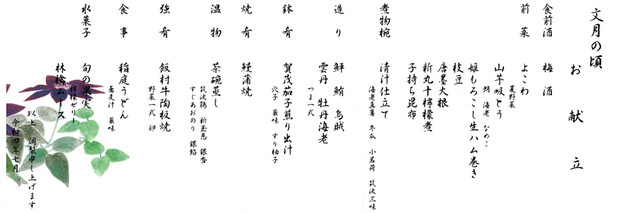 文月の頃
お献立
食前酒 梅酒
前菜 よこわ
夏野菜
山芋吸とう
鱧 海老 なめこ
姫もろこし生ハム巻き
枝豆
唐墨大根
新丸十檸檬煮
子持ち昆布
煮物椀 清汁仕立て
海老真薯 冬瓜 小茗荷
造り 鮮鮪 烏賊
雲丹 牡丹海老
つま一式
鉢肴 賀茂茄子煎り出汁
穴子 薬味 すり柚子
焼肴 鰻蒲焼
温物 茶碗蒸し
すじあおのり 銀餡
強肴 飯村牛陶板焼
野菜一式 卵
食事 稲庭うどん
蕎麦汁 薬味
水菓子 旬の果実
ゼリー
林檎ムース
以上調製申し上げます
令和四年七月